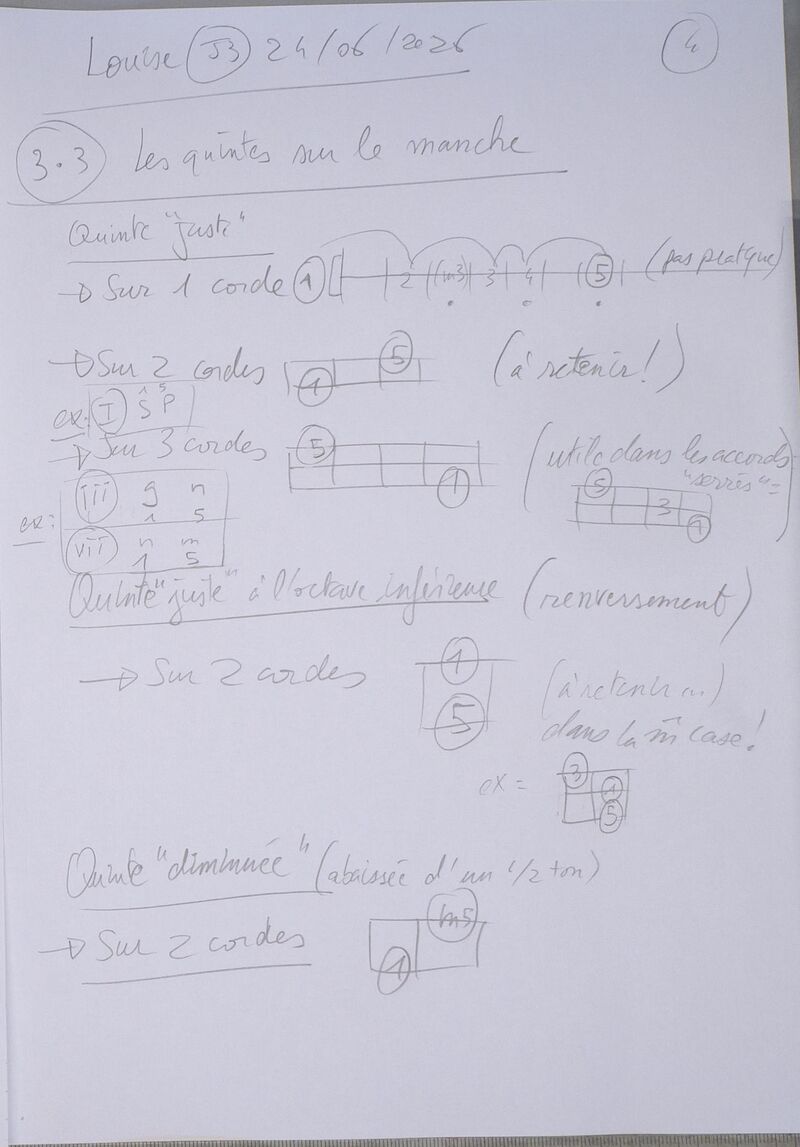 Louise J3 24/06/2026 4
3.3 Les quintes sur le manche
Quinte "juste"
→ Sur 1 corde 1 2 (m3) 3 4 5 (pas pratique)
→ Sur 2 cordes 1 5 (à retenir!)
ex: I S P
1 5
→ Sur 3 cordes 5 1 (utile dans les accords
"serrés" =
5 3 1)
ex: iii g n
1 5
vii n m
1 5
Quinte "juste" à l'octave inférieure (renversement)
→ Sur 2 cordes 1 5 (à retenir)
dans la m̂ case!
ex = 3 1 5
Quinte "diminuée" (abaissée d'un 1/2 ton)
→ Sur 2 cordes 1 m5